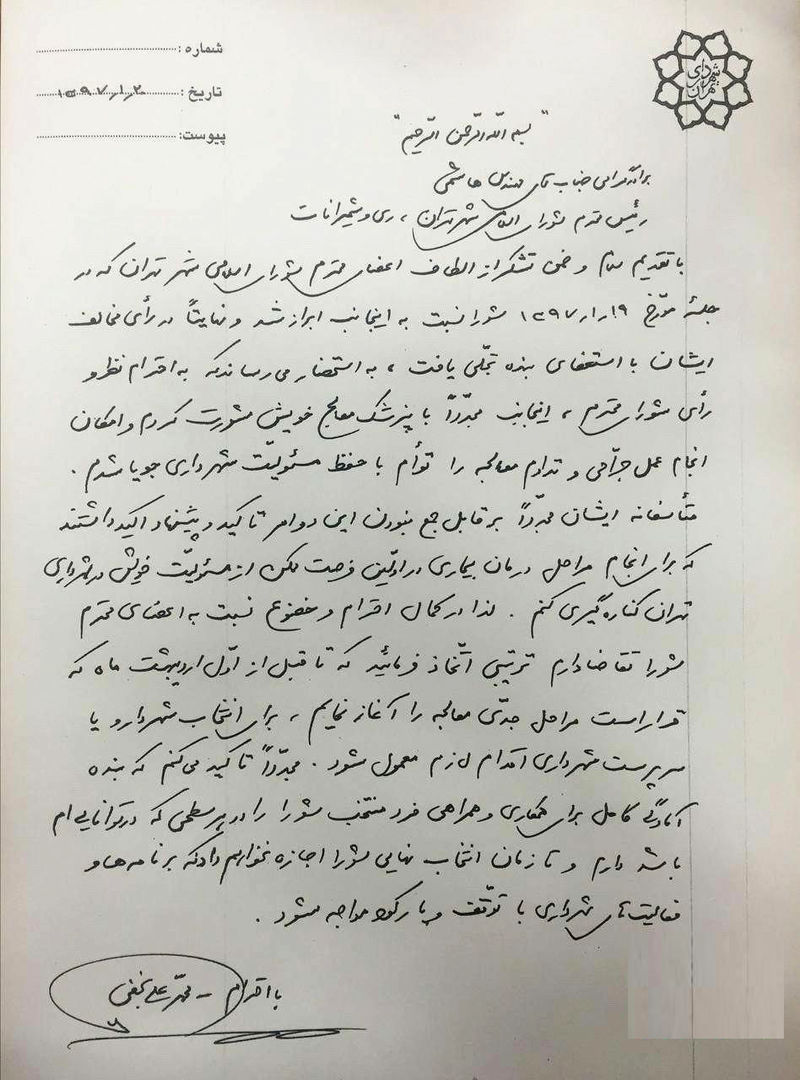 شهرداری تهران
شماره :
تاریخ : ۱۳۹۷/۱/۲۰
پیوست:
"بسم الله الرحمن الرحیم"
برادر گرامی جناب آقای مهندس هاشمی
رئیس محترم شورای اسلامی شهر تهران، ری و شمیرانات
با تقدیم سلام و ضمن تشکر از الطاف اعضای محترم شورای اسلامی شهر تهران که در
جلسهٔ مورّخ ۱۹/۱/۱۳۹۷ شورا نسبت به اینجانب ابراز شد و نهایتاً در رأی مخالف
ایشان با استعفای بنده تجلّی یافت، به استحضار می‌رساند که به احترام نظر و
رأی شورای محترم، اینجانب مجدّداً با پزشک معالج خویش مشورت کردم و امکان
انجام عمل جرّاحی و تداوم معالجه را توأم با حفظ مسئولیّت شهرداری جویا شدم.
متأسفانه ایشان مجدّداً بر قابل جمع نبودن این دو امر تاکید و پیشنهاد اکید داشتند
که برای انجام مراحل درمان بیماری در اوّلین فرصت ممکن از مسئولیّت خویش در شهرداری
تهران کناره‌گیری کنم. لذا در کمال احترام و خضوع نسبت به اعضای محترم
شورا تقاضا دارم ترتیبی اتّخاذ فرمائید که تا قبل از اوّل اردیبهشت ماه که
قرار است مراحل جدّی معالجه را آغاز نمایم، برای انتخاب شهردار و یا
سرپرست شهرداری اقدام لازم معمول شود. مجدّداً تاکید می‌کنم که بنده
آمادگی کامل برای همکاری و همراهی فرد منتخب شورا را در هر سطحی که در توانایی‌ام
باشد دارم و تا زمان انتخاب نهایی شورا اجازه نخواهم داد که برنامه‌ها و
فعالیت‌های شهرداری با توقّف و یا رکود مواجه شود.
با احترام - محمّد علی نجفی